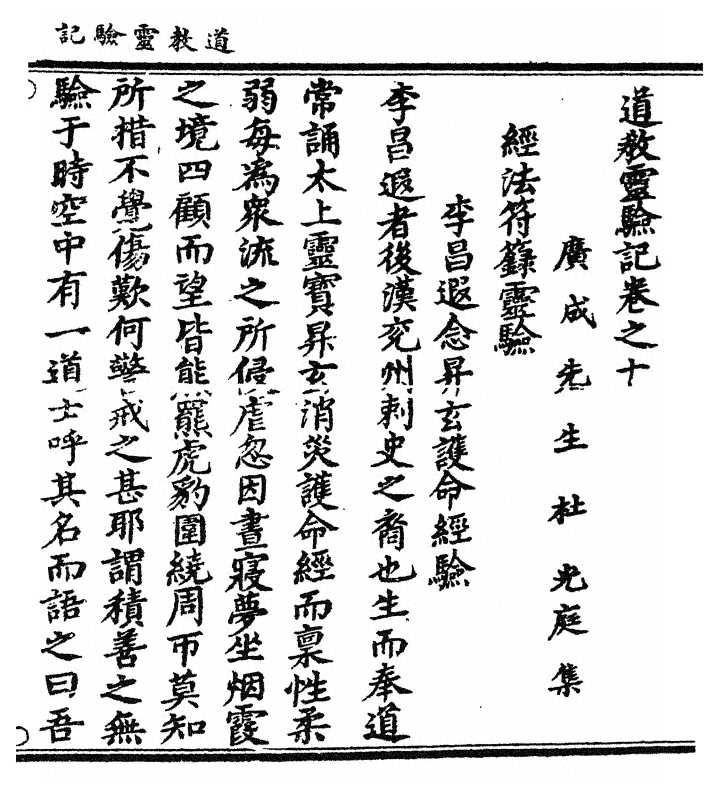 道教靈驗記
道教靈驗記卷之十
廣成先生杜光庭集
經法符籙靈驗
李昌遐念昇玄護命經驗
李昌遐者後漢兖州刺史之裔也生而奉道
常誦太上靈寶昇玄消災護命經而稟性柔
弱每為衆流之所侵虐忽因晝寢夢坐烟霞
之境四顧而望皆能羆虎豹圍繞周帀莫知
所措不覺傷歎何警戒之甚耶謂積善之無
驗于時空中有一道士呼其名而語之曰吾